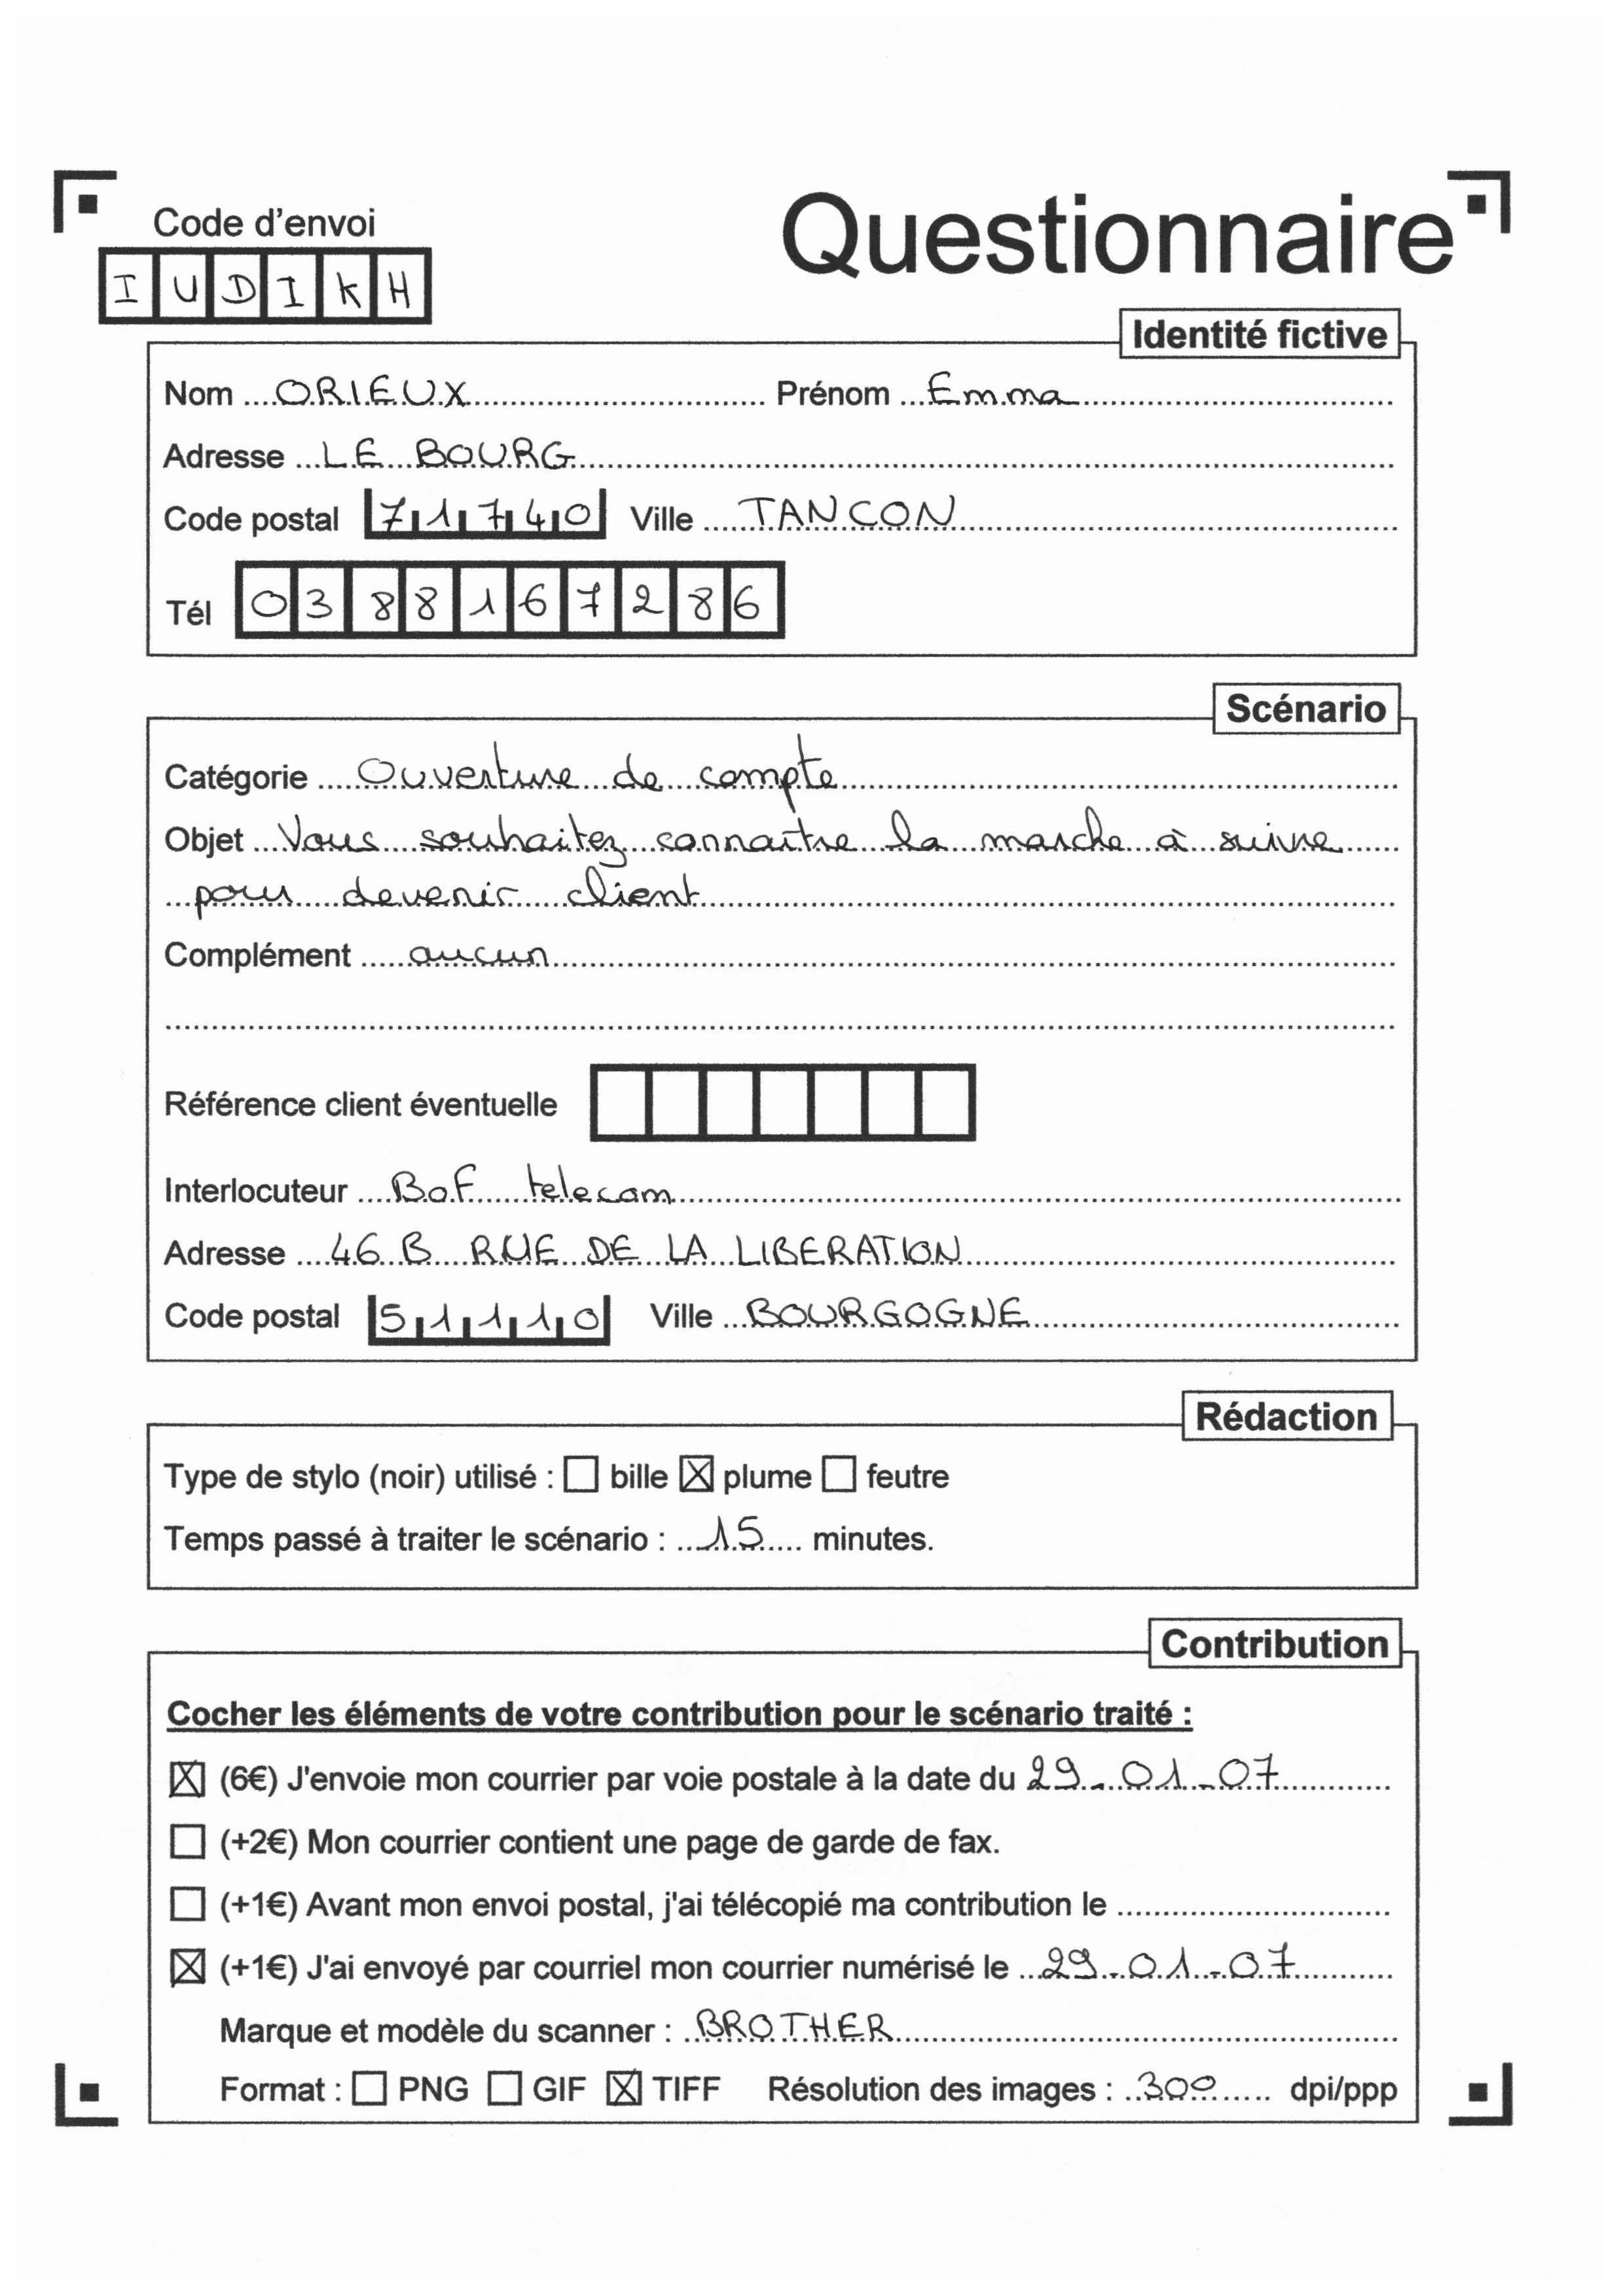 Questionnaire
Code d'envoi
IUDIKH
Identité fictive
Nom ORIEUX Prénom Emma
Adresse LE BOURG
Code postal 71740 Ville TANCON
Tél 0388167286
Scénario
Catégorie Ouverture de compte
Objet Vous souhaitez connaitre la marche à suivre
pour devenir client
Complément aucun
Référence client éventuelle
Interlocuteur BoF telecom
Adresse 46 B RUE DE LA LIBERATION
Code postal 51110 Ville BOURGOGNE
Rédaction
Type de stylo (noir) utilisé : ☐ bille ☒ plume ☐ feutre
Temps passé à traiter le scénario : 15 minutes.
Contribution
Cocher les éléments de votre contribution pour le scénario traité :
☒ (6€) J'envoie mon courrier par voie postale à la date du 29-01-07
☐ (+2€) Mon courrier contient une page de garde de fax.
☐ (+1€) Avant mon envoi postal, j'ai télécopié ma contribution le
☒ (+1€) J'ai envoyé par courriel mon courrier numérisé le 29-01-07
Marque et modèle du scanner : BROTHER
Format : ☐ PNG ☐ GIF ☒ TIFF Résolution des images : 300 dpi/ppp